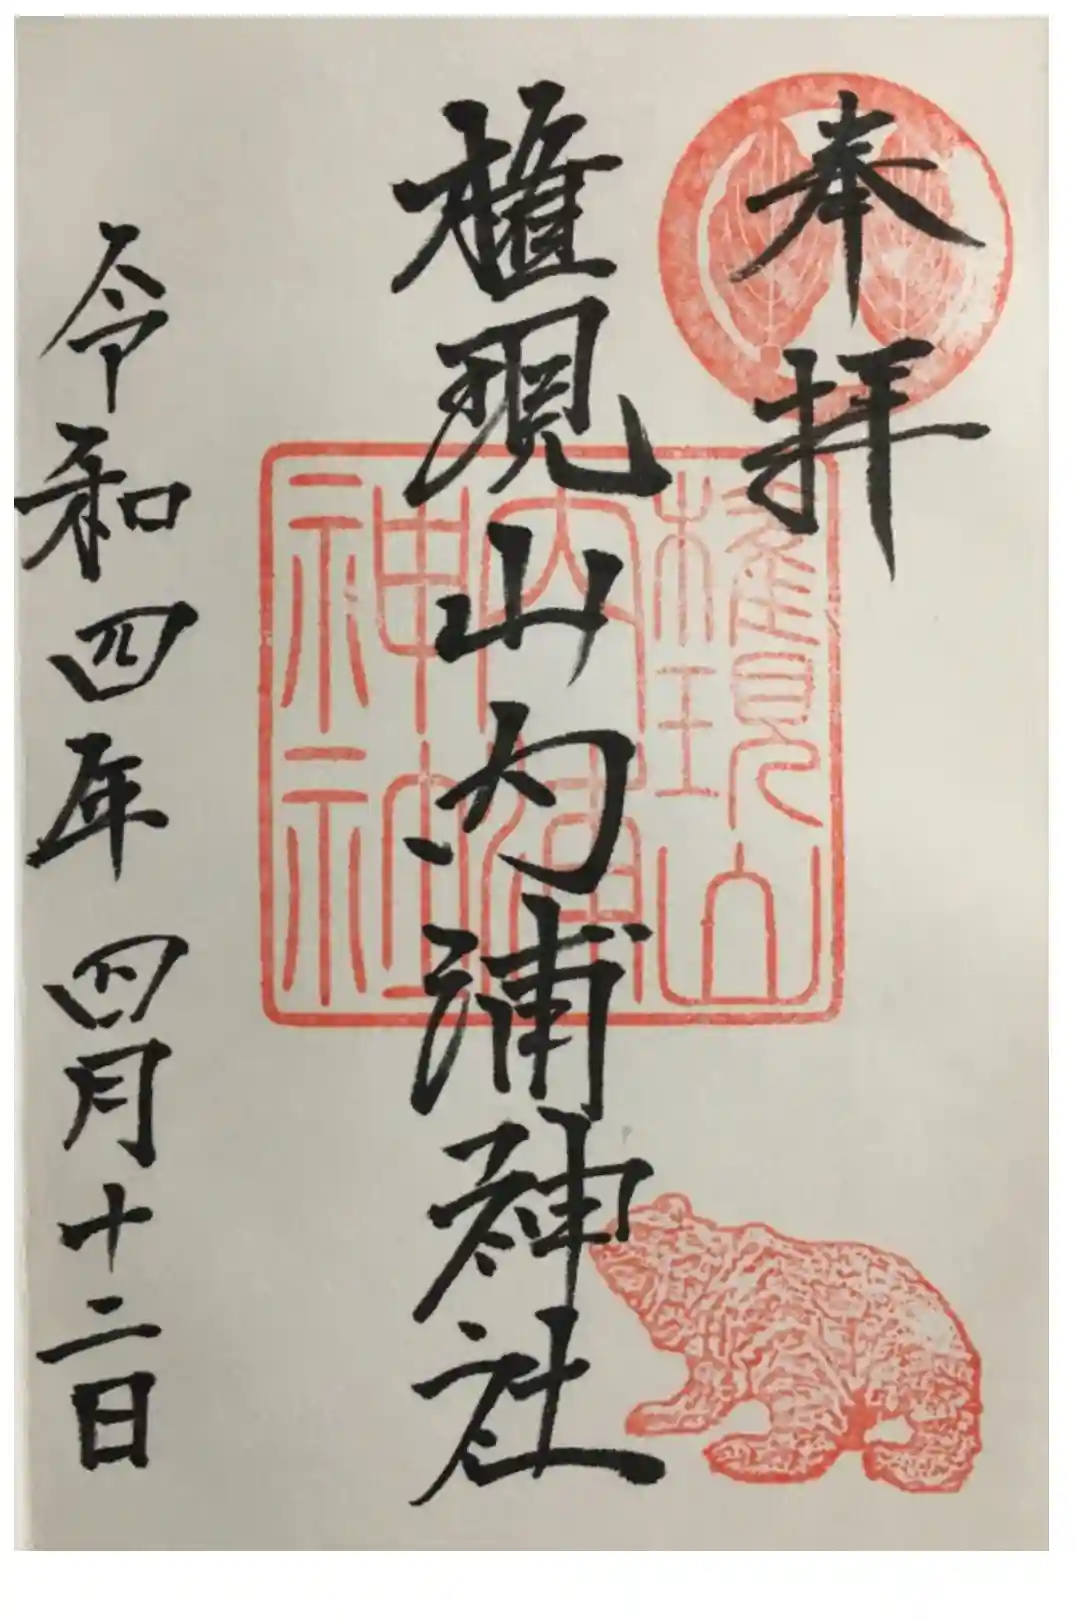 奉拝
権現山内浦神社
權現山
内浦
神社
令和四年四月十二日